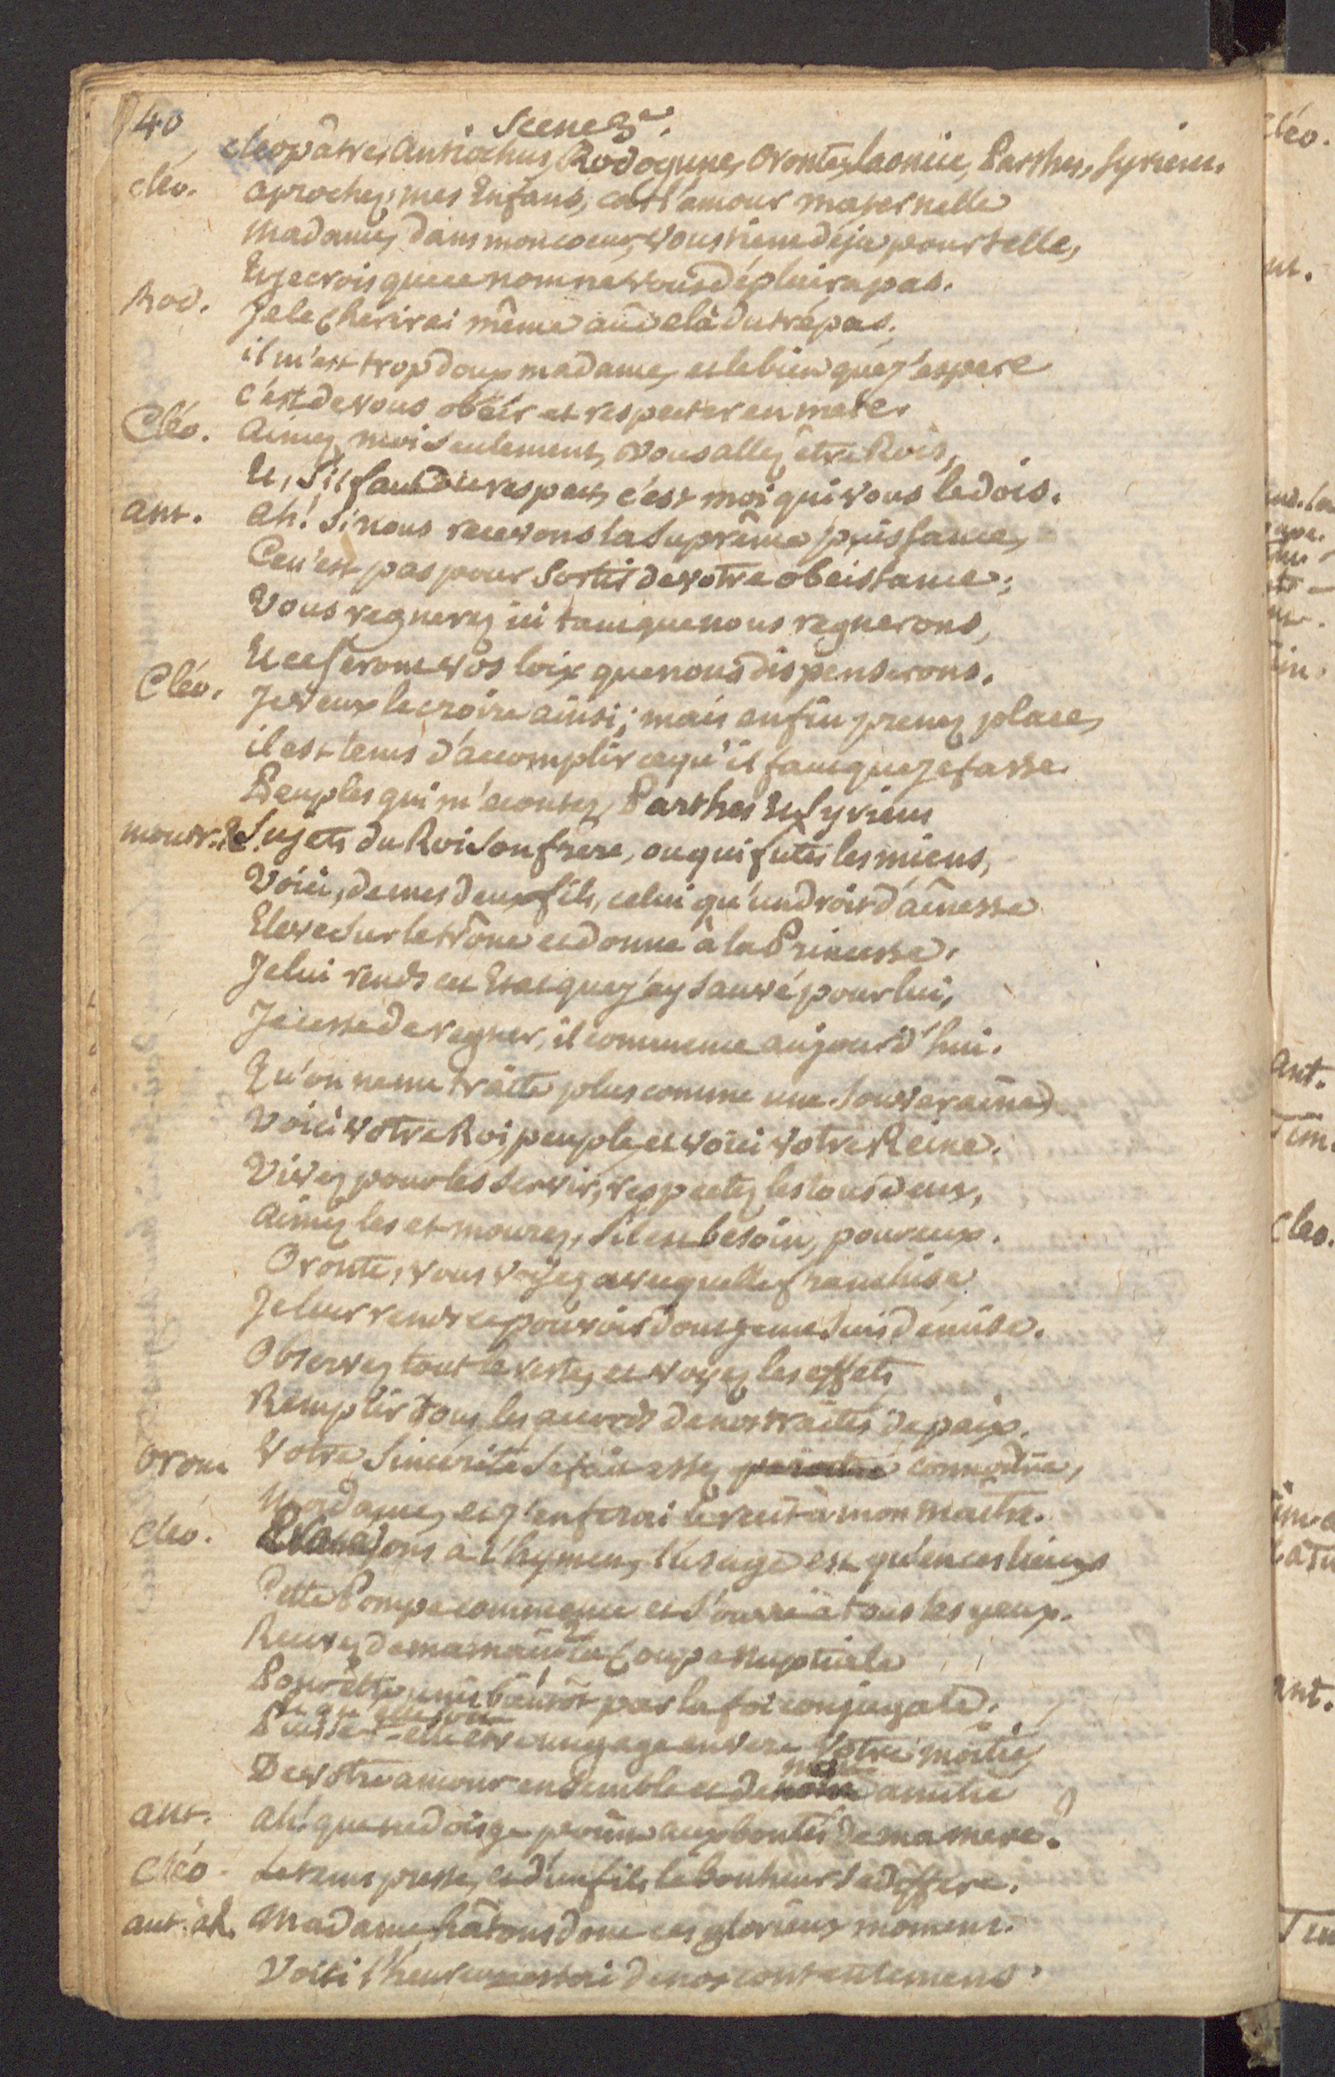 40
Scene 3e.
Cléopâtre, Antiochus, Rodogune, Oronte, Laonice, Parthes, Syriens.
cléo. aprochez, mes Enfans, car l'amour maternelle
Madame, dans mon coeur, vous tient déja pour telle,
Et je crois que ce nom ne vous déplaira pas.
Rod. Je le chérirai même au delà du trépas.
il m'est trop doux madame, et le bien que j'espere
c'est de vous obéir et respecter en mere.
Cléo. aimez moi seulement, vous allez être Rois,
Et, s'il faut du respect, c'est moi qui vous le dois.
ant. ah! si nous recevons la suprême puissance,
Ce n'est pas pour sortir de votre obeissance;
Vous regnerez ici tant que nous regnerons,
Et ce seront vos loix que nous dispenserons.
Cléo. Je veux le croire ainsi; mais enfin prenez place,
il est tems d'accomplir ce qu'il faut que je fasse.
Peuples qui m'ecoutez, Parthes et Syriens
montr. R. Sujets du Roi son frere, ou qui fûtes les miens,
Voici, de mes deux fils, celui qu'un droit d'aînesse
Eleve sur le trône et donne à la Princesse.
Je lui rends cet Etat que j'ay sauvé pour lui,
Je cesse de regner, il commence aujourd'hui.
Qu'on ne me traite plus comme une souveraine
Voici votre Roi, peuple, et voici votre Reine.
Vivez pour les servir, respectez les tous deux,
aimez les et mourez, s'il est besoin, pour eux.
Oronte, vous voyez avec quelle franchise
Je leur rends ce pouvoir dont je me suis demise.
Observez tout le reste, et voyez les effets
Remplir tous les accords de nos traités de paix.
Oron. Votre sincérité se fait assez paroitre connoître,
Madame, et j'en ferai le recit à mon maître.
Cléo. à l'hymen, l'usage est qu'en ces lieux
Cette Pompe commence et s'ouvre à tous les yeux.
Recevez de ma main la Coupe nuptiale
Pour être unis bientôt par la foi conjugale.
Puisse-t-elle être un gage envers votre moitié,
De votre amour ensemble et de mon amitié
ant. ah! que ne dois-je point aux bontés de ma mere.
Cléo. Le tems presse, et d'un fils le bonheur se differe.
ant. à R. Madame hâtons donc ces glorieux momens.
Voici l'heureux essai de nos contentemens.